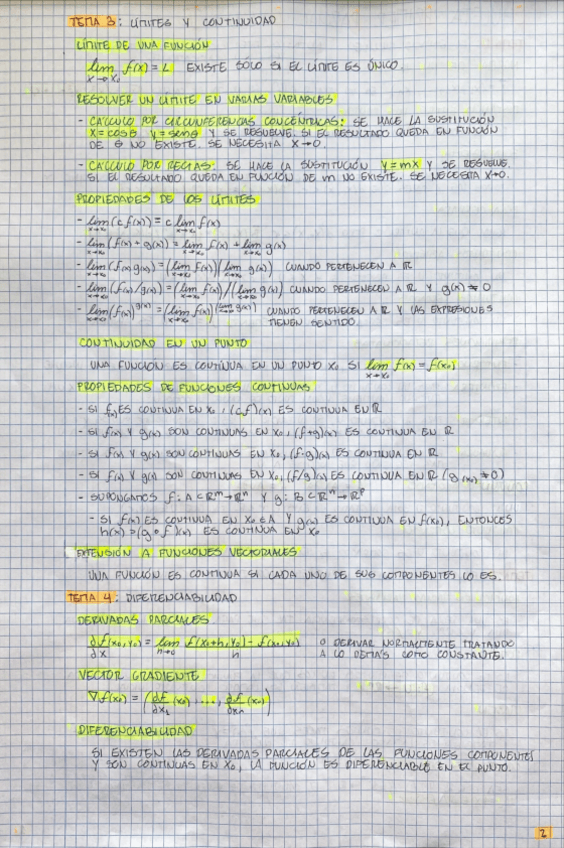 TEMA 3: LÍMITES Y CONTINUIDAD
LÍMITE DE UNA FUNCIÓN
lim x→x₀ f(x) = L EXISTE SÓLO SI EL LÍMITE ES ÚNICO.
RESOLVER UN LÍMITE EN VARIAS VARIABLES
- CÁLCULO POR CIRCUNFERENCIAS CONCÉNTRICAS: SE HACE LA SUSTITUCIÓN
X = cosθ Y = senθ Y SE RESUELVE. SI EL RESULTADO QUEDA EN FUNCIÓN
DE θ NO EXISTE. SE NECESITA X→0.
- CÁLCULO POR RECTAS: SE HACE LA SUSTITUCIÓN Y = mX Y SE RESUELVE.
SI EL RESULTADO QUEDA EN FUNCIÓN DE m NO EXISTE. SE NECESITA X→0.
PROPIEDADES DE LOS LÍMITES
- lim x→x₀ (c f(x)) = c lim x→x₀ f(x)
- lim x→x₀ (f(x) + g(x)) = lim x→x₀ f(x) + lim x→x₀ g(x)
- lim x→x₀ (f(x) g(x)) = (lim x→x₀ f(x)) (lim x→x₀ g(x)) CUANDO PERTENECEN A ℝ
- lim x→x₀ (f(x)/g(x)) = (lim x→x₀ f(x)) / (lim x→x₀ g(x)) CUANDO PERTENECEN A ℝ Y g(x) ≠ 0
- lim (f(x))^g(x) = (lim x→x₀ f(x))^(lim x→x₀ g(x)) CUANDO PERTENECEN A ℝ Y LAS EXPRESIONES
TIENEN SENTIDO.
CONTINUIDAD EN UN PUNTO
UNA FUNCIÓN ES CONTINUA EN UN PUNTO X₀ SI lim x→x₀ f(x) = f(x₀)
PROPIEDADES DE FUNCIONES CONTINUAS
- SI f(x) ES CONTINUA EN X₀, (c f)(x) ES CONTINUA EN ℝ
- SI f(x) Y g(x) SON CONTINUAS EN X₀, (f+g)(x) ES CONTINUA EN ℝ
- SI f(x) Y g(x) SON CONTINUAS EN X₀, (f·g)(x) ES CONTINUA EN ℝ
- SI f(x) Y g(x) SON CONTINUAS EN X₀, (f/g)(x) ES CONTINUA EN ℝ (g(x₀) ≠ 0)
- SUPONGAMOS f: A ⊂ ℝᵐ → ℝⁿ Y g: B ⊂ ℝⁿ → ℝᵖ
- SI f(x) ES CONTINUA EN X₀ ∈ A Y g(x) ES CONTINUA EN f(x₀), ENTONCES
h(x) = (g ∘ f)(x) ES CONTINUA EN X₀
EXTENSIÓN A FUNCIONES VECTORIALES
UNA FUNCIÓN ES CONTINUA SI CADA UNO DE SUS COMPONENTES LO ES.
TEMA 4: DIFERENCIABILIDAD
DERIVADAS PARCIALES
∂f(x₀,y₀)/∂x = lim h→0 (f(x₀+h,y₀) - f(x₀,y₀))/h O DERIVAR NORMALMENTE TRATANDO
A LO DEMÁS COMO CONSTANTE.
VECTOR GRADIENTE
∇f(x₀) = (∂f/∂x₁ (x₀), ..., ∂f/∂xₙ (x₀))
DIFERENCIABILIDAD
SI EXISTEN LAS DERIVADAS PARCIALES DE LAS FUNCIONES COMPONENTES
Y SON CONTINUAS EN X₀, LA FUNCIÓN ES DIFERENCIABLE EN EL PUNTO.
2